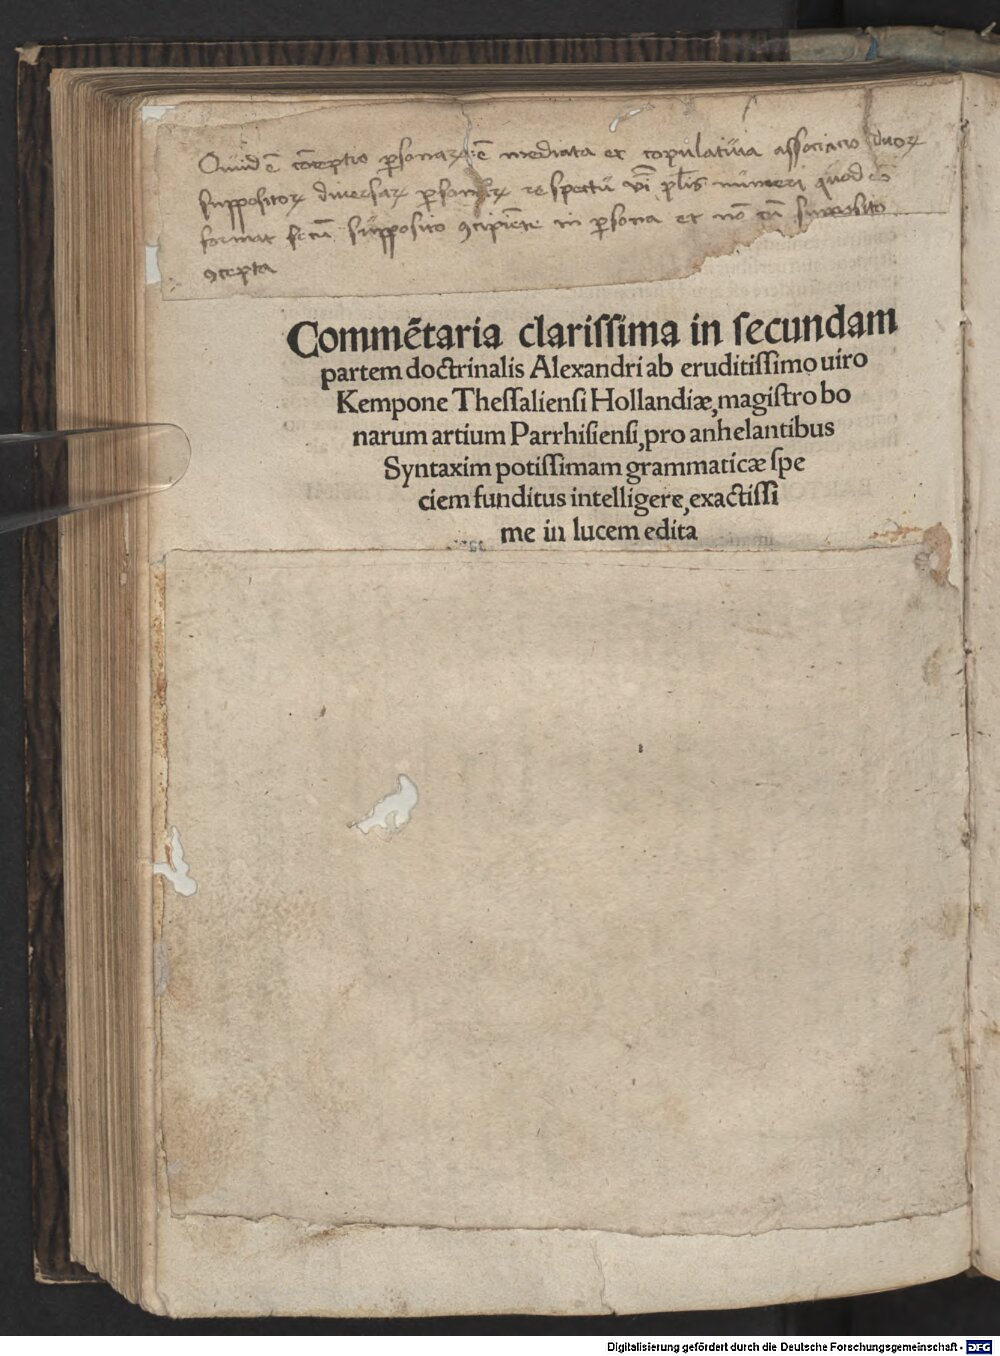 Quid ē cōceptio ꝑsonaꝝ ē mediata et copulatiua associacio duoꝝ
suppositoꝝ diuersaꝝ ꝑsonaꝝ respectu vͥ pl̄is numeri quod
format secū supposito ꝯcipiēte in ꝑsona et nō cū supposito
ꝯcepta
Commẽtaria clariſſima in ſecundam
partem doctrinalis Alexandri ab eruditiſſimo uiro
Kempone Theſſalienſi Hollandiæ, magiſtro bo
narum artium Parrhiſienſi, pro anhelantibus
Syntaxim potiſſimam grammaticæ ſpe
ciem funditus intelligere, exactiſſi
me in lucem edita
Digitalisierung gefördert durch die Deutsche Forschungsgemeinschaft - DFG